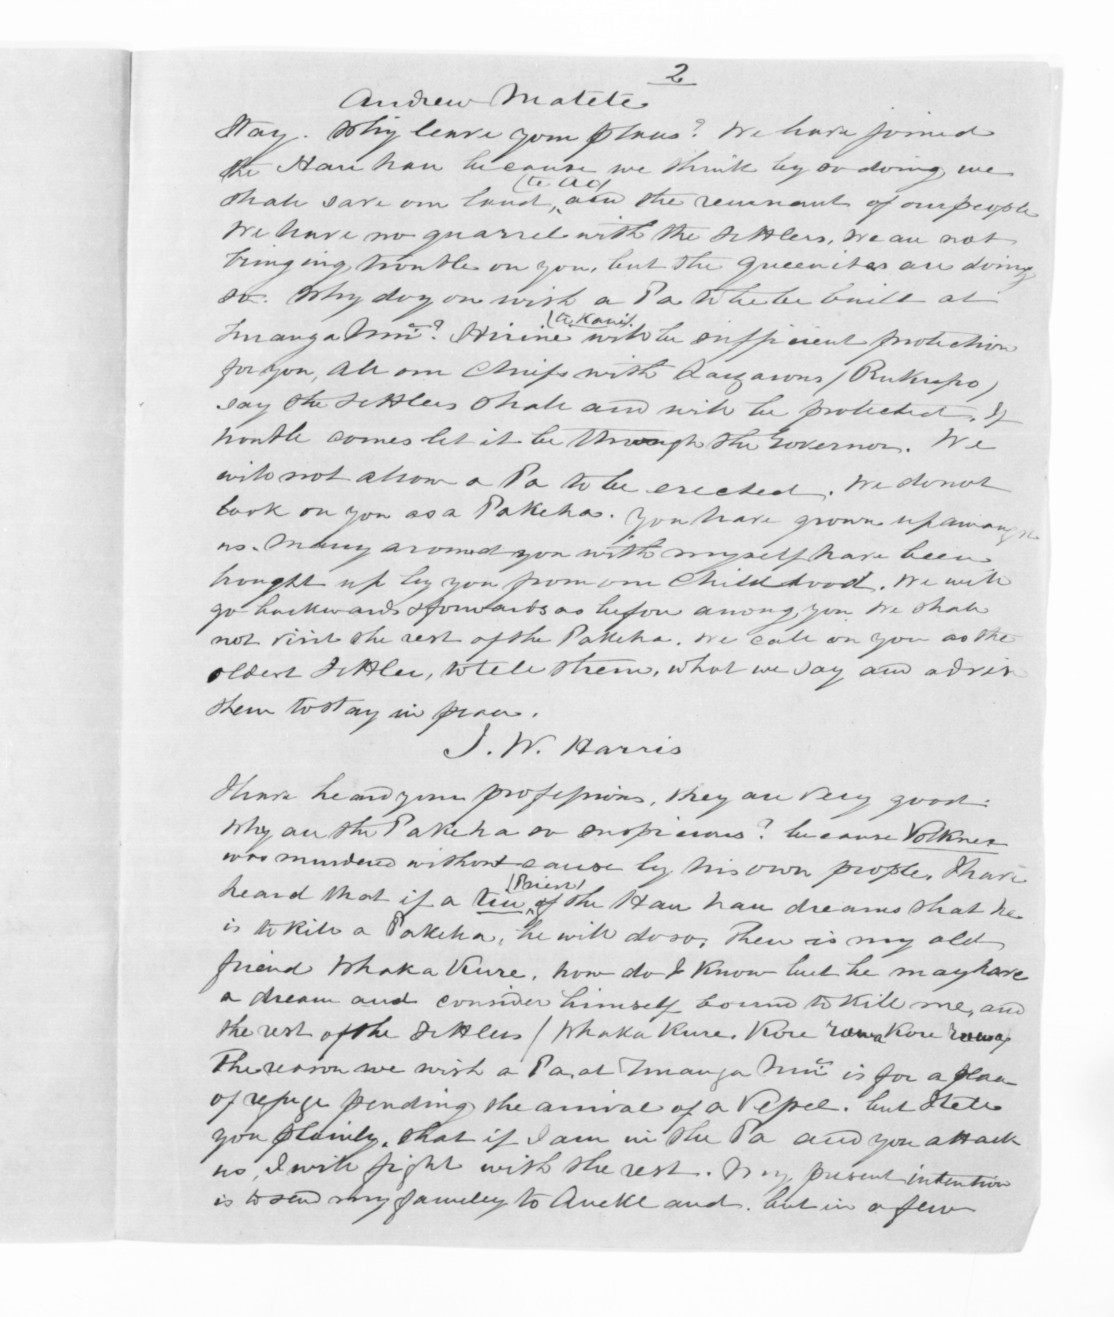 2
Andrew Matete
Stay. Why leave your place? We have joined
the Hau hau because we think by so doing, we
shall save our land, (te Ao) and the remnant of our people
We have no quarrel with the settlers, we are not
bringing trouble on you, but the Queenites are doing
so. Why do you wish a Pa to be built at
Turanga Nui? Hirini (te Kani) will be sufficient protection
for you, all our Chiefs with Lazarus (Rukupo)
say the settlers shall and will be protected. If
trouble comes let it be through the Governor. We
will not allow a Pa to be erected. We do not
look on you as a Pakeha. You have grown up amongst
us. Many around you with myself have been
brought up by you from our Childhood. We will
go backwards & forwards as before among you we shall
not visit the rest of the Pakeha. We call on you as the
oldest settler, to tell them, what we say and advise
them to stay in peace.
J. W. Harris
I have heard your professions, they are very good.
Why are the Pakeha so suspicious? because Volkner
was murdered without cause by his own people. I have
heard that if a Tiu (Priest) of the Hau hau dreams that he
is to kill a Pakeha, he will do so. There is my old
friend Whaka Kure. how do I know but he may have
a dream and consider himself bound to kill me, and
the rest of the settlers (Whaka Kure. Kore rawa Kore rawa)
The reason we wish a Pa at Turanga Nui is for a place
of refuge pending the arrival of a Vessel. but I tell
you plainly, that if I am in the Pa and you attack
us, I will fight with the rest. My present intention
is to send my family to Auckland. but in a few